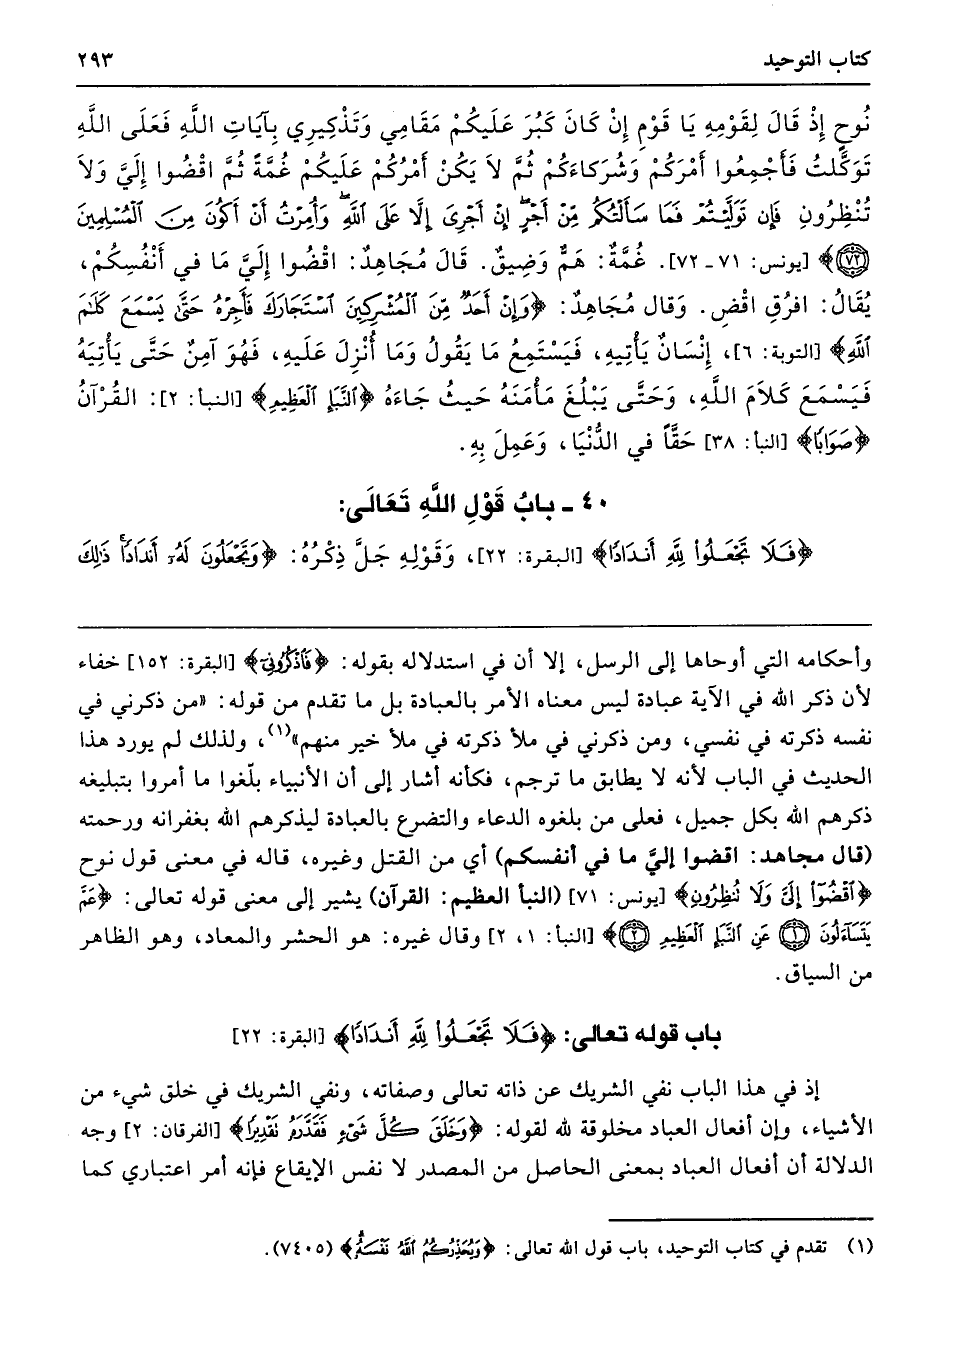 كتاب التوحيد ٢٩٣
نُوحٍ إِذْ قَالَ لِقَوْمِهِ يَا قَوْمِ إِنْ كَانَ كَبُرَ عَلَيكُمْ مَقَامِي وَتَذْكِيرِي بِآيَاتِ اللَّهِ فَعَلَى اللَّهِ
تَوَكَّلتُ فَأَجْمِعُوا أَمْرَكُمْ وَشُرَكاءَكُمْ ثُمَّ لاَ يَكُنْ أَمْرُكُمْ عَلَيكُمْ غُمَّةً ثُمَّ اقْضُوا إِلَيَّ وَلاَ
تُنْظِرُونِ فَإِن تَوَلَّيْتُمْ فَمَا سَأَلْتُكُم مِّنْ أَجْرٍ إِنْ أَجْرِىَ إِلَّا عَلَى ٱللَّهِ وَأُمِرْتُ أَنْ أَكُونَ مِنَ ٱلْمُسْلِمِينَ
(٧٢)﴾ [يونس: ٧١ ـ ٧٢]. غُمَّةٌ: هَمٌّ وَضِيقٌ. قَالَ مُجَاهِدٌ: اقْضُوا إِلَيَّ مَا في أَنْفُسِكُمْ،
يُقَالُ: افرُقِ اقْضِ. وَقال مُجَاهِدٌ: ﴿وَإِنْ أَحَدٌ مِّنَ ٱلْمُشْرِكِينَ ٱسْتَجَارَكَ فَأَجِرْهُ حَتَّىٰ يَسْمَعَ كَلَٰمَ
ٱللَّهِ﴾ [التوبة: ٦]، إِنْسَانٌ يَأْتِيهِ، فَيَسْتَمِعُ مَا يَقُولُ وَمَا أُنْزِلَ عَلَيهِ، فَهُوَ آمِنٌ حَتَّى يَأْتِيَهُ
فَيَسْمَعَ كَلاَمَ اللَّهِ، وَحَتَّى يَبْلُغَ مَأْمَنَهُ حَيثُ جَاءَهُ ﴿ٱلنَّبَإِ ٱلْعَظِيمِ﴾ [النبأ: ٢]: القُرْآنُ
﴿صَوَابًا﴾ [النبأ: ٣٨] حَقّاً في الدُّنْيَا، وَعَمِلَ بِهِ.
٤٠ ـ بابُ قَوْلِ اللَّهِ تَعَالَى:
﴿فَلَا تَجْعَلُوا۟ لِلَّهِ أَندَادًا﴾ [البقرة: ٢٢]، وَقَوْلِهِ جَلَّ ذِكْرُهُ: ﴿وَتَجْعَلُونَ لَهُۥٓ أَندَادًا ۚ ذَٰلِكَ
وأحكامه التي أوحاها إلى الرسل، إلا أن في استدلاله بقوله: ﴿فَٱذْكُرُونِىٓ﴾ [البقرة: ١٥٢] خفاء
لأن ذكر الله في الآية عبادة ليس معناه الأمر بالعبادة بل ما تقدم من قوله: «من ذكرني في
نفسه ذكرته في نفسي، ومن ذكرني في ملأ ذكرته في ملأ خير منهم»(١)، ولذلك لم يورد هذا
الحديث في الباب لأنه لا يطابق ما ترجم، فكأنه أشار إلى أن الأنبياء بلّغوا ما أمروا بتبليغه
ذكرهم الله بكل جميل، فعلى من بلغوه الدعاء والتضرع بالعبادة ليذكرهم الله بغفرانه ورحمته
(قال مجاهد: اقضوا إليَّ ما في أنفسكم) أي من القتل وغيره، قاله في معنى قول نوح
﴿ٱقْضُوٓا۟ إِلَىَّ وَلَا تُنظِرُونِ﴾ [يونس: ٧١] (النبأ العظيم: القرآن) يشير إلى معنى قوله تعالى: ﴿عَمَّ
يَتَسَآءَلُونَ (١) عَنِ ٱلنَّبَإِ ٱلْعَظِيمِ (٢)﴾ [النبأ: ١، ٢] وقال غيره: هو الحشر والمعاد، وهو الظاهر
من السياق.
باب قوله تعالى: ﴿فَلَا تَجْعَلُوا۟ لِلَّهِ أَندَادًا﴾ [البقرة: ٢٢]
إذ في هذا الباب نفي الشريك عن ذاته تعالى وصفاته، ونفي الشريك في خلق شيء من
الأشياء، وإن أفعال العباد مخلوقة لله لقوله: ﴿وَخَلَقَ كُلَّ شَىْءٍ فَقَدَّرَهُۥ تَقْدِيرًا﴾ [الفرقان: ٢] وجه
الدلالة أن أفعال العباد بمعنى الحاصل من المصدر لا نفس الإيقاع فإنه أمر اعتباري كما
(١) تقدم في كتاب التوحيد، باب قول الله تعالى: ﴿وَيُحَذِّرُكُمُ ٱللَّهُ نَفْسَهُۥ﴾ (٧٤٠٥).